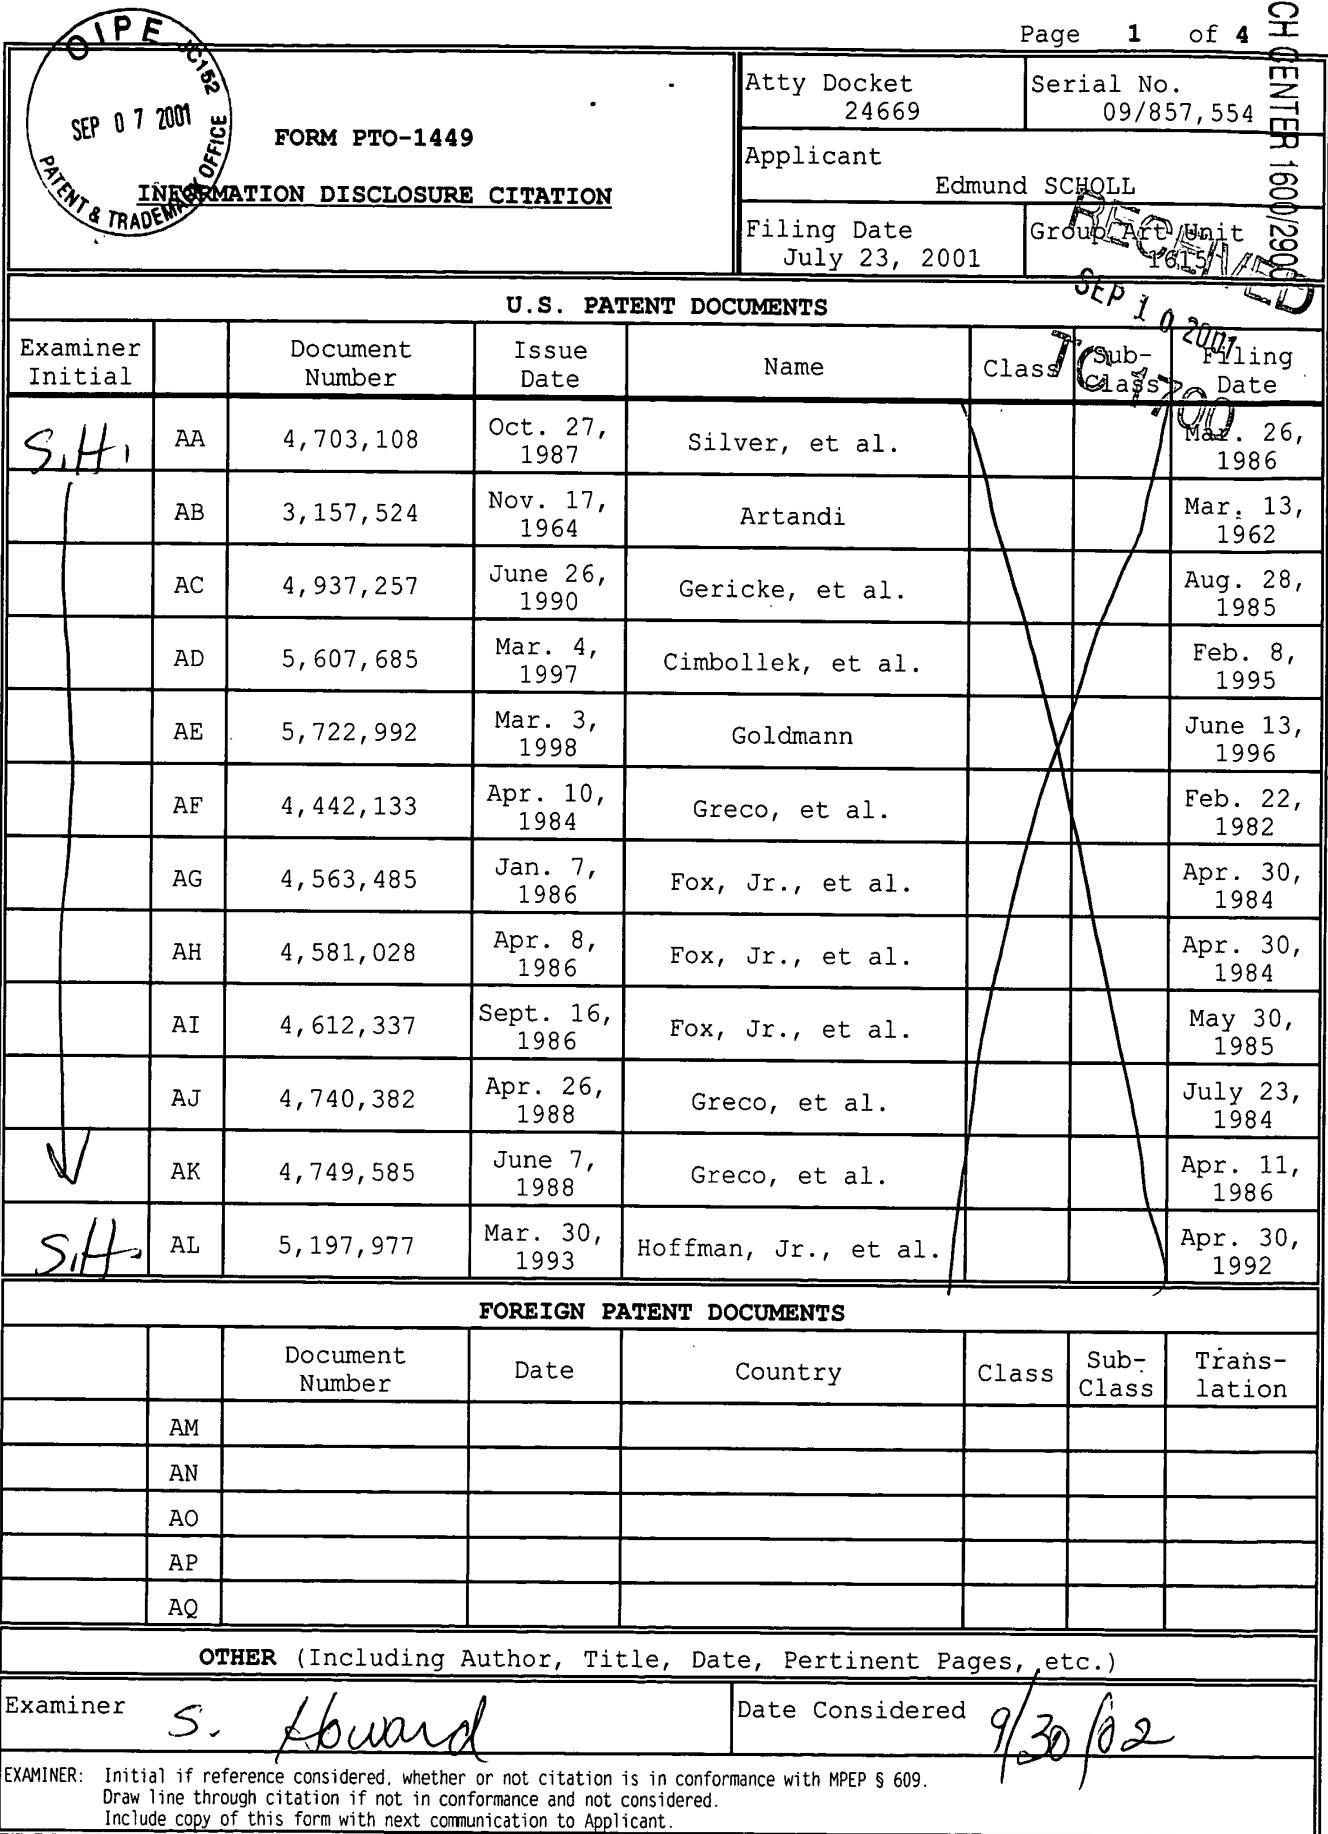 Page 1 of 4
OIPE JC152
SEP 07 2001
PATENT & TRADEMARK OFFICE
CH CENTER 1600/2900
FORM PTO-1449
INFORMATION DISCLOSURE CITATION
Atty Docket
24669
Serial No.
09/857,554
Applicant
Edmund SCHOLL
Filing Date
July 23, 2001
Group Art Unit
1615
RECEIVED
SEP 10 2001
TC 1700
U.S. PATENT DOCUMENTS
Examiner Initial Document Number Issue Date Name Class Sub-Class Filing Date
S.H. AA 4,703,108 Oct. 27, 1987 Silver, et al. Mar. 26, 1986
AB 3,157,524 Nov. 17, 1964 Artandi Mar. 13, 1962
AC 4,937,257 June 26, 1990 Gericke, et al. Aug. 28, 1985
AD 5,607,685 Mar. 4, 1997 Cimbollek, et al. Feb. 8, 1995
AE 5,722,992 Mar. 3, 1998 Goldmann June 13, 1996
AF 4,442,133 Apr. 10, 1984 Greco, et al. Feb. 22, 1982
AG 4,563,485 Jan. 7, 1986 Fox, Jr., et al. Apr. 30, 1984
AH 4,581,028 Apr. 8, 1986 Fox, Jr., et al. Apr. 30, 1984
AI 4,612,337 Sept. 16, 1986 Fox, Jr., et al. May 30, 1985
AJ 4,740,382 Apr. 26, 1988 Greco, et al. July 23, 1984
AK 4,749,585 June 7, 1988 Greco, et al. Apr. 11, 1986
S.H. AL 5,197,977 Mar. 30, 1993 Hoffman, Jr., et al. Apr. 30, 1992
FOREIGN PATENT DOCUMENTS
Document Number Date Country Class Sub-Class Trans-lation
AM
AN
AO
AP
AQ
OTHER (Including Author, Title, Date, Pertinent Pages, etc.)
Examiner S. Howard
Date Considered 9/30/02
EXAMINER: Initial if reference considered, whether or not citation is in conformance with MPEP § 609.
Draw line through citation if not in conformance and not considered.
Include copy of this form with next communication to Applicant.